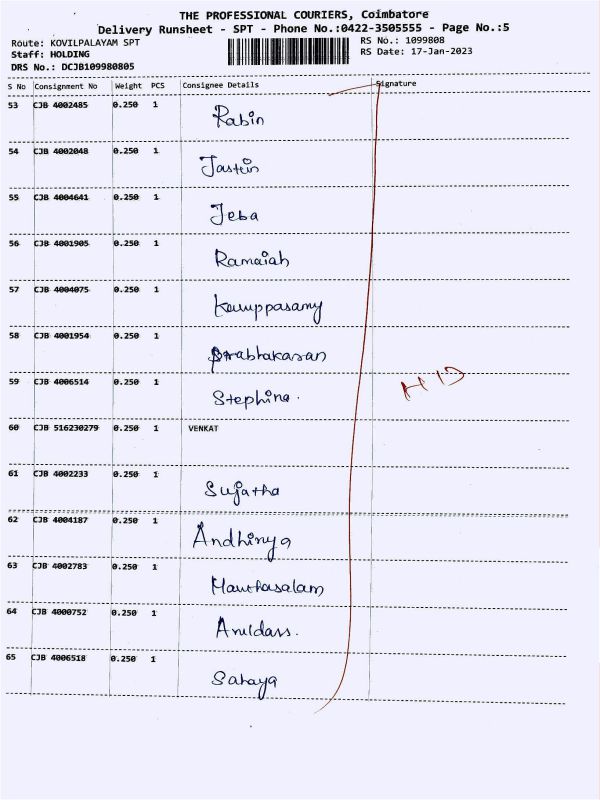 THE PROFESSIONAL COURIERS, Coimbatore
Delivery Runsheet - SPT - Phone No.:0422-3505555 - Page No.:5
Route: KOVILPALAYAM SPT
RS No.: 1099808
Staff: HOLDING
RS Date: 17-Jan-2023
DRS No.: DCJB109980805
S No Consignment No Weight PCS Consignee Details Signature
53 CJB 4002485 0.250 1 Rabin
54 CJB 4002048 0.250 1 Jastin
55 CJB 4004641 0.250 1 Jeba
56 CJB 4001905 0.250 1 Ramaiah
57 CJB 4004075 0.250 1 Karuppasamy
58 CJB 4001954 0.250 1 Prabhakaran
59 CJB 4006514 0.250 1 Stephina.
60 CJB 516230279 0.250 1 VENKAT
61 CJB 4002233 0.250 1 Sujatha
62 CJB 4004187 0.250 1 Andhinya
63 CJB 4002783 0.250 1
64 CJB 4000752 0.250 1 Aruldass.
65 CJB 4006518 0.250 1 Sahaya